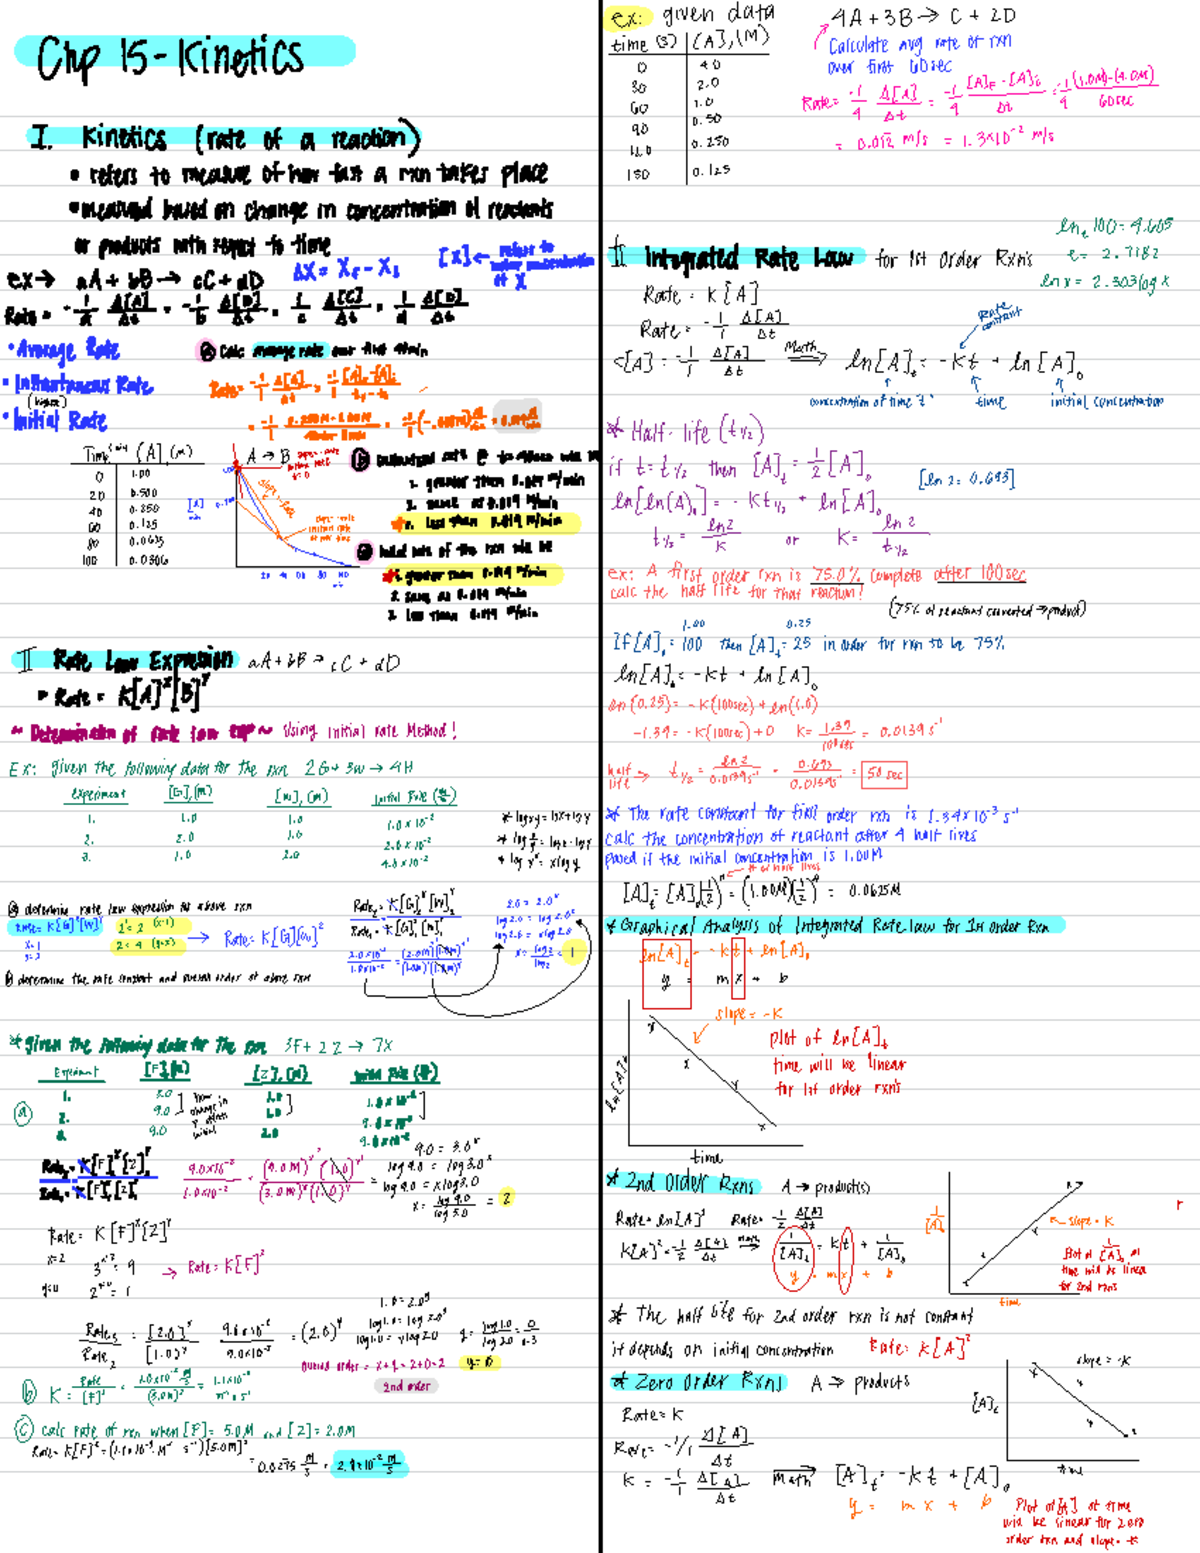 Chp 15 - Kinetics
I. Kinetics (rate of a reaction)
• refers to measure of how fast a rxn takes place
• measured based on change in concentration of reactants
or products with respect to time
[X] ← refers to
of X
ex → aA + bB → cC + dD
ΔX = Xf - Xi
Rate = -1/a Δ[A]/Δt = -1/b Δ[B]/Δt = 1/c Δ[C]/Δt = 1/d Δ[D]/Δt
• Average Rate
• Instantaneous Rate
• Initial Rate
Calc average rate over first
Rate = -1/1 Δ[A]/Δt
Time [A], (M)
0 1.00
20 0.500
40 0.250
60 0.125
80 0.0625
100
A → B
1. greater than 0.019 M/min
2. same as 0.019 M/min
3. less than 0.019 M/min
Initial rate of the rxn will be
1. greater than 0.019 M/min
2. same as 0.019 M/min
3. less than 0.019 M/min
II Rate Law Expression aA + bB → cC + dD
Rate = K[A]ˣ[B]ʸ
~ Determination of Rate law exp ~ Using Initial rate Method!
Ex: given the following data for the rxn 2G + 3W → 4H
experiment [G], (M) [W], (M) Initial Rate
1. 1.0 1.0 1.0 x 10⁻²
2. 2.0 1.0 2.0 x 10⁻²
3. 1.0 2.0 4.0 x 10⁻²
* log xʸ = x log y
a) determine rate law expression for above rxn
Rate = K[G]ˣ[W]ʸ
→ Rate = K[G][W]²
2.0 = 2.0ˣ
log 2.0 = log 2.0ˣ
log 2.0 = x log 2.0
x = log 2/log 2 = 1
b) determine the rate constant and overall order of above rxn
* given the following data for the rxn 3F + 2Z → 7X
Experiment [F], (M) [Z], (M) Initial Rate
1. 3.0 1.0 1.0 x 10⁻²
2. 9.0 1.0 9.0 x 10⁻²
3. 9.0 2.0 9.0 x 10⁻²
a
9.0 x 10⁻²/1.0 x 10⁻² = (9.0M)ˣ(1.0)ʸ/(3.0M)ˣ(1.0)ʸ
9.0 = 3.0ˣ
log 9.0 = log 3.0ˣ
log 9.0 = x log 3.0
x = log 9.0/log 3.0 = 2
Rate = K[F]ˣ[Z]ʸ
x=2 3ˣ⁼² = 9
→ Rate = K[F]²
y=0 2ʸ⁼⁰ = 1
Rate₃/Rate₂ = [2.0]ʸ/[1.0]ʸ 9.0 x 10⁻²/9.0 x 10⁻² = (2.0)ʸ
1.0 = 2.0ʸ
log 1.0 = log 2.0ʸ
log 1.0 = y log 2.0
y = log 1.0/log 2.0 = 0/0.3
y = 0
Overall order = x + y = 2+0=2
2nd order
b K = Rate/[F]²
c calc rate of rxn when [F] = 5.0M and [Z] = 2.0M
= 0.0275 M/s = 2.8x10⁻² M/s
ex: given data
4A + 3B → C + 2D
Calculate avg rate of rxn
over first 60 sec
time (s) [A], (M)
0 4.0
30 2.0
60 1.0
90 0.50
120 0.250
150 0.125
Rate = -1/4 Δ[A]/Δt = -1/4 [A]f - [A]i/Δt = -1/4 (1.0M)-(4.0M)/60 sec
= 0.012 M/s = 1.3x10⁻² M/s
ln 100 = 4.605
e = 2.7182
ln x = 2.303 log x
II Integrated Rate Law for 1st Order Rxn's
Rate = K[A]
Rate = -1/1 Δ[A]/Δt
<[A] = -1/1 Δ[A]/Δt Math ⟹ ln[A]t = -Kt + ln[A]₀
Rate constant
concentration of time t time initial concentration
* Half-life (t½)
if t = t½ then [A]t = 1/2 [A]₀
[ln 2 = 0.693]
ln[ln(A)₀] = -Kt½ + ln[A]₀
t½ = ln2/K or K = ln 2/t½
ex: A first order rxn is 75.0% complete after 100 sec
calc the half life for that reaction!
(75% of reactant converted → product)
1.00 0.25
If [A]₀ = 100 then [A]t = 25 in order for rxn to be 75%
ln[A]t = -Kt + ln[A]₀
ln(0.25) = -K(100sec) + ln(1.0)
-1.39 = -K(100sec) + 0 K = 1.39/100sec = 0.0139 s⁻¹
half life → t½ = ln2/0.0139s⁻¹ = 0.693/0.0139s⁻¹ = 50 sec
* The rate constant for first order rxn is 1.34x10⁻³ s⁻¹
calc the concentration of reactant after 4 half lives
passed if the initial concentration is 1.00M
# of half lives
[A]t = [A]₀(1/2)ⁿ = (1.00M)(1/2)⁴ = 0.0625M
* Graphical Analysis of Integrated Rate law for 1st Order Rxn
ln[A]t = -Kt + ln[A]₀
y = mx + b
slope = -K
ln[A]t
time
plot of ln[A]t
time will be linear
for 1st order rxn's
* 2nd Order Rxns A → product(s)
Rate = ln[A]² Rate = -1/2 Δ[A]/Δt
K[A]² = -1/2 Δ[A]/Δt math ⟹ 1/[A]t = Kt + 1/[A]₀
y = mx + b
1/[A]t
slope = K
Plot of 1/[A]t at
time will be linear
for 2nd rxns
time
r
* The half life for 2nd order rxn is not constant
it depends on initial concentration Rate = K[A]²
* Zero Order Rxns A → products
Rate = K
Rate = -1/1 Δ[A]/Δt
K = -1/1 Δ[A]/Δt math ⟹ [A]t = -Kt + [A]₀
y = mx + b
slope = -K
[A]t
time
Plot of [A] at time
will be linear for zero
order rxn and slope = -K